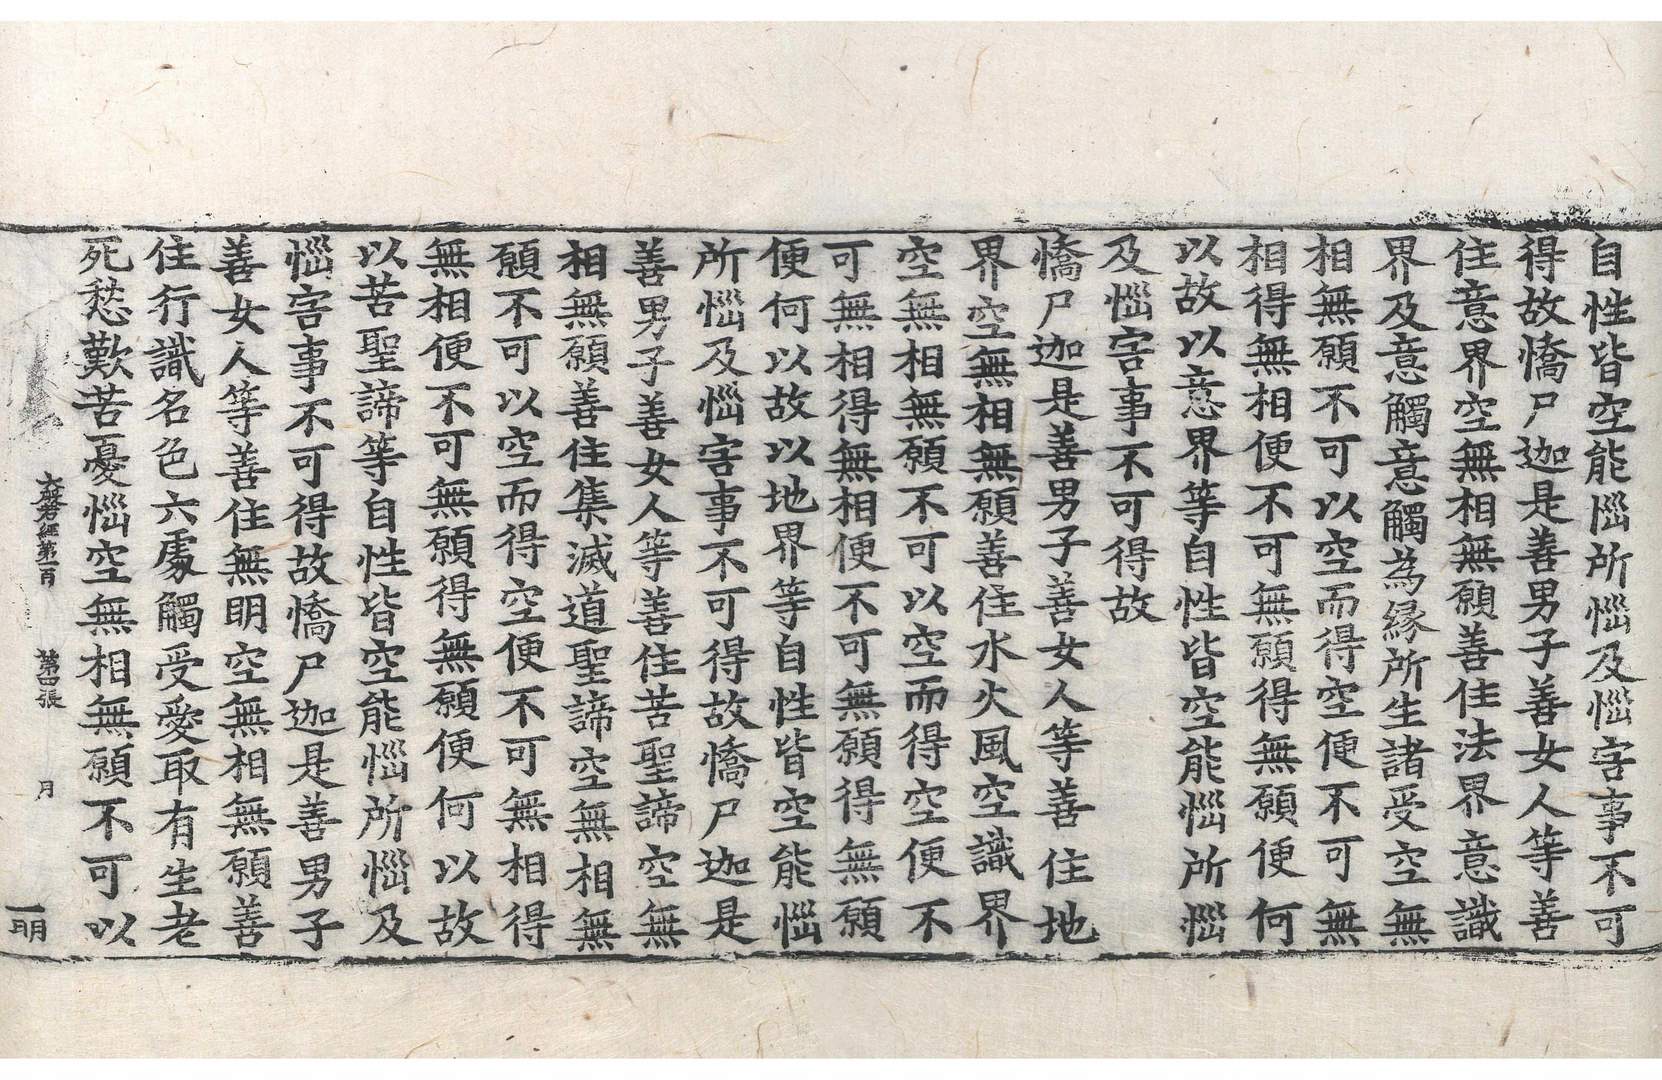 自性皆空能惱所惱及惱害事不可
得故憍尸迦是善男子善女人等善
住意界空無相無願善住法界意識
界及意觸意觸為緣所生諸受空無
相無願不可以空而得空便不可無
相得無相便不可無願得無願便何
以故以意界等自性皆空能惱所惱
及惱害事不可得故
憍尸迦是善男子善女人等善住地
界空無相無願善住水火風空識界
空無相無願不可以空而得空便不
可無相得無相便不可無願得無願
便何以故以地界等自性皆空能惱
所惱及惱害事不可得故憍尸迦是
善男子善女人等善住苦聖諦空無
相無願善住集滅道聖諦空無相無
願不可以空而得空便不可無相得
無相便不可無願得無願便何以故
以苦聖諦等自性皆空能惱所惱及
惱害事不可得故憍尸迦是善男子
善女人等善住無明空無相無願善
住行識名色六處觸受愛取有生老
死愁歎苦憂惱空無相無願不可以
大般若經第一百 第四張 月
一明